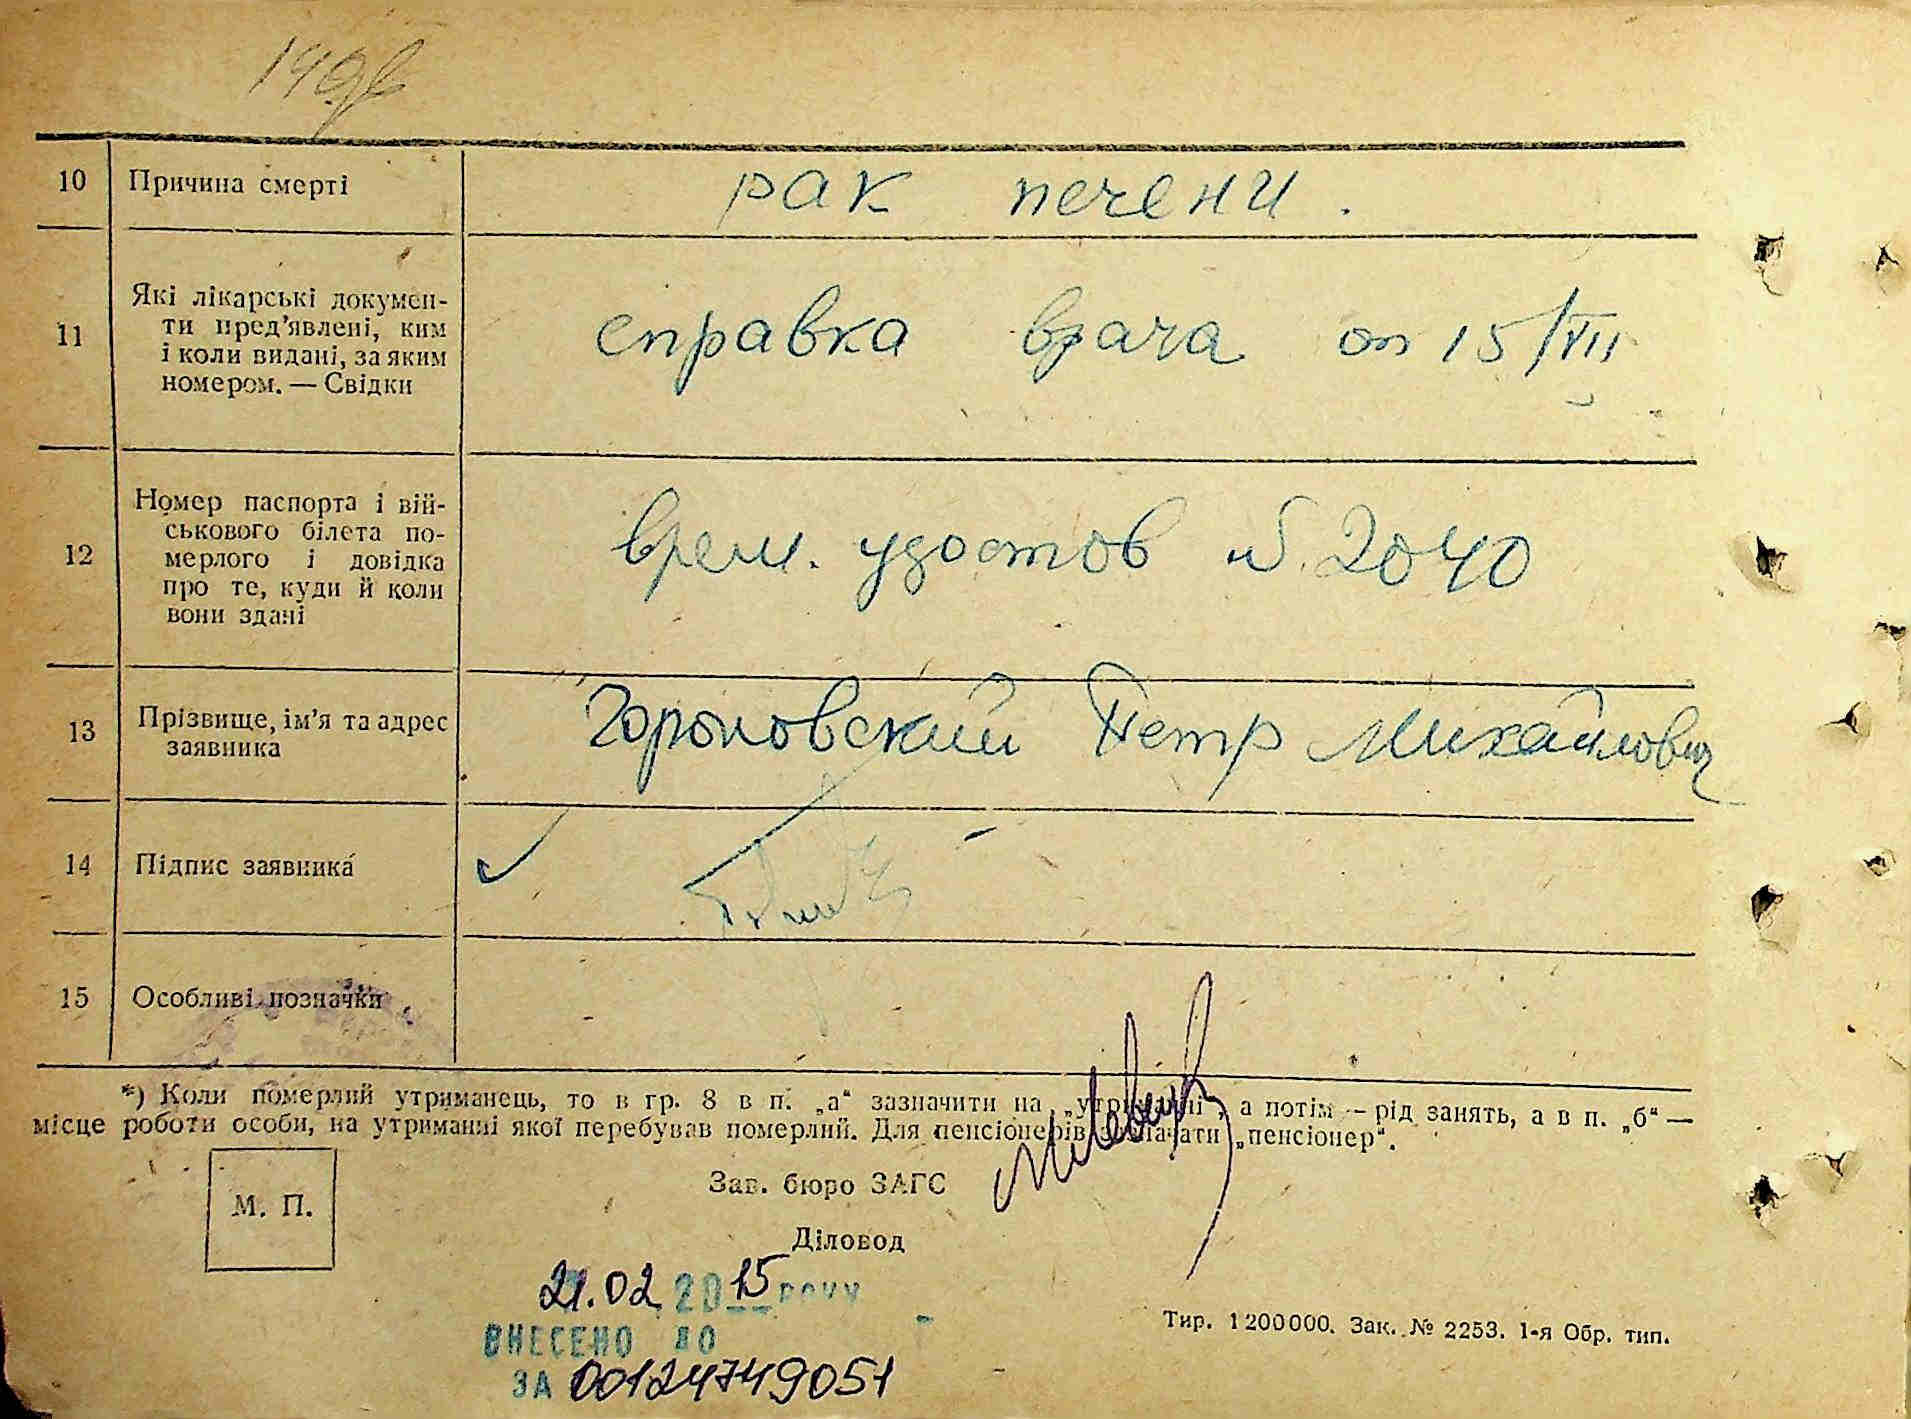 10 Причина смерті рак печени.
11 Які лікарські докумен-
ти пред'явлені, ким
і коли видані, за яким
номером. — Свідки
справка врача от 15/VII
12 Номер паспорта і вій-
ськового білета по-
мерлого і довідка
про те, куди й коли
вони здані
врем. удостов № 2040
13 Прізвище, ім'я та адрес
заявника
Гороновский Петр Михайлович
14 Підпис заявника
15 Особливі позначки
*) Коли померлий утриманець, то в гр. 8 в п. „а“ зазначити на „утриманні“, а потім — рід занять, а в п. „б“ —
місце роботи особи, на утриманні якої перебував померлий. Для пенсіонерів зазначати „пенсіонер“.
М. П.
Зав. бюро ЗАГС
Діловод
21.02 2015 року
ВНЕСЕНО ДО
ЗА 00124749051
Тир. 1200000. Зак. № 2253. 1-я Обр. тип.